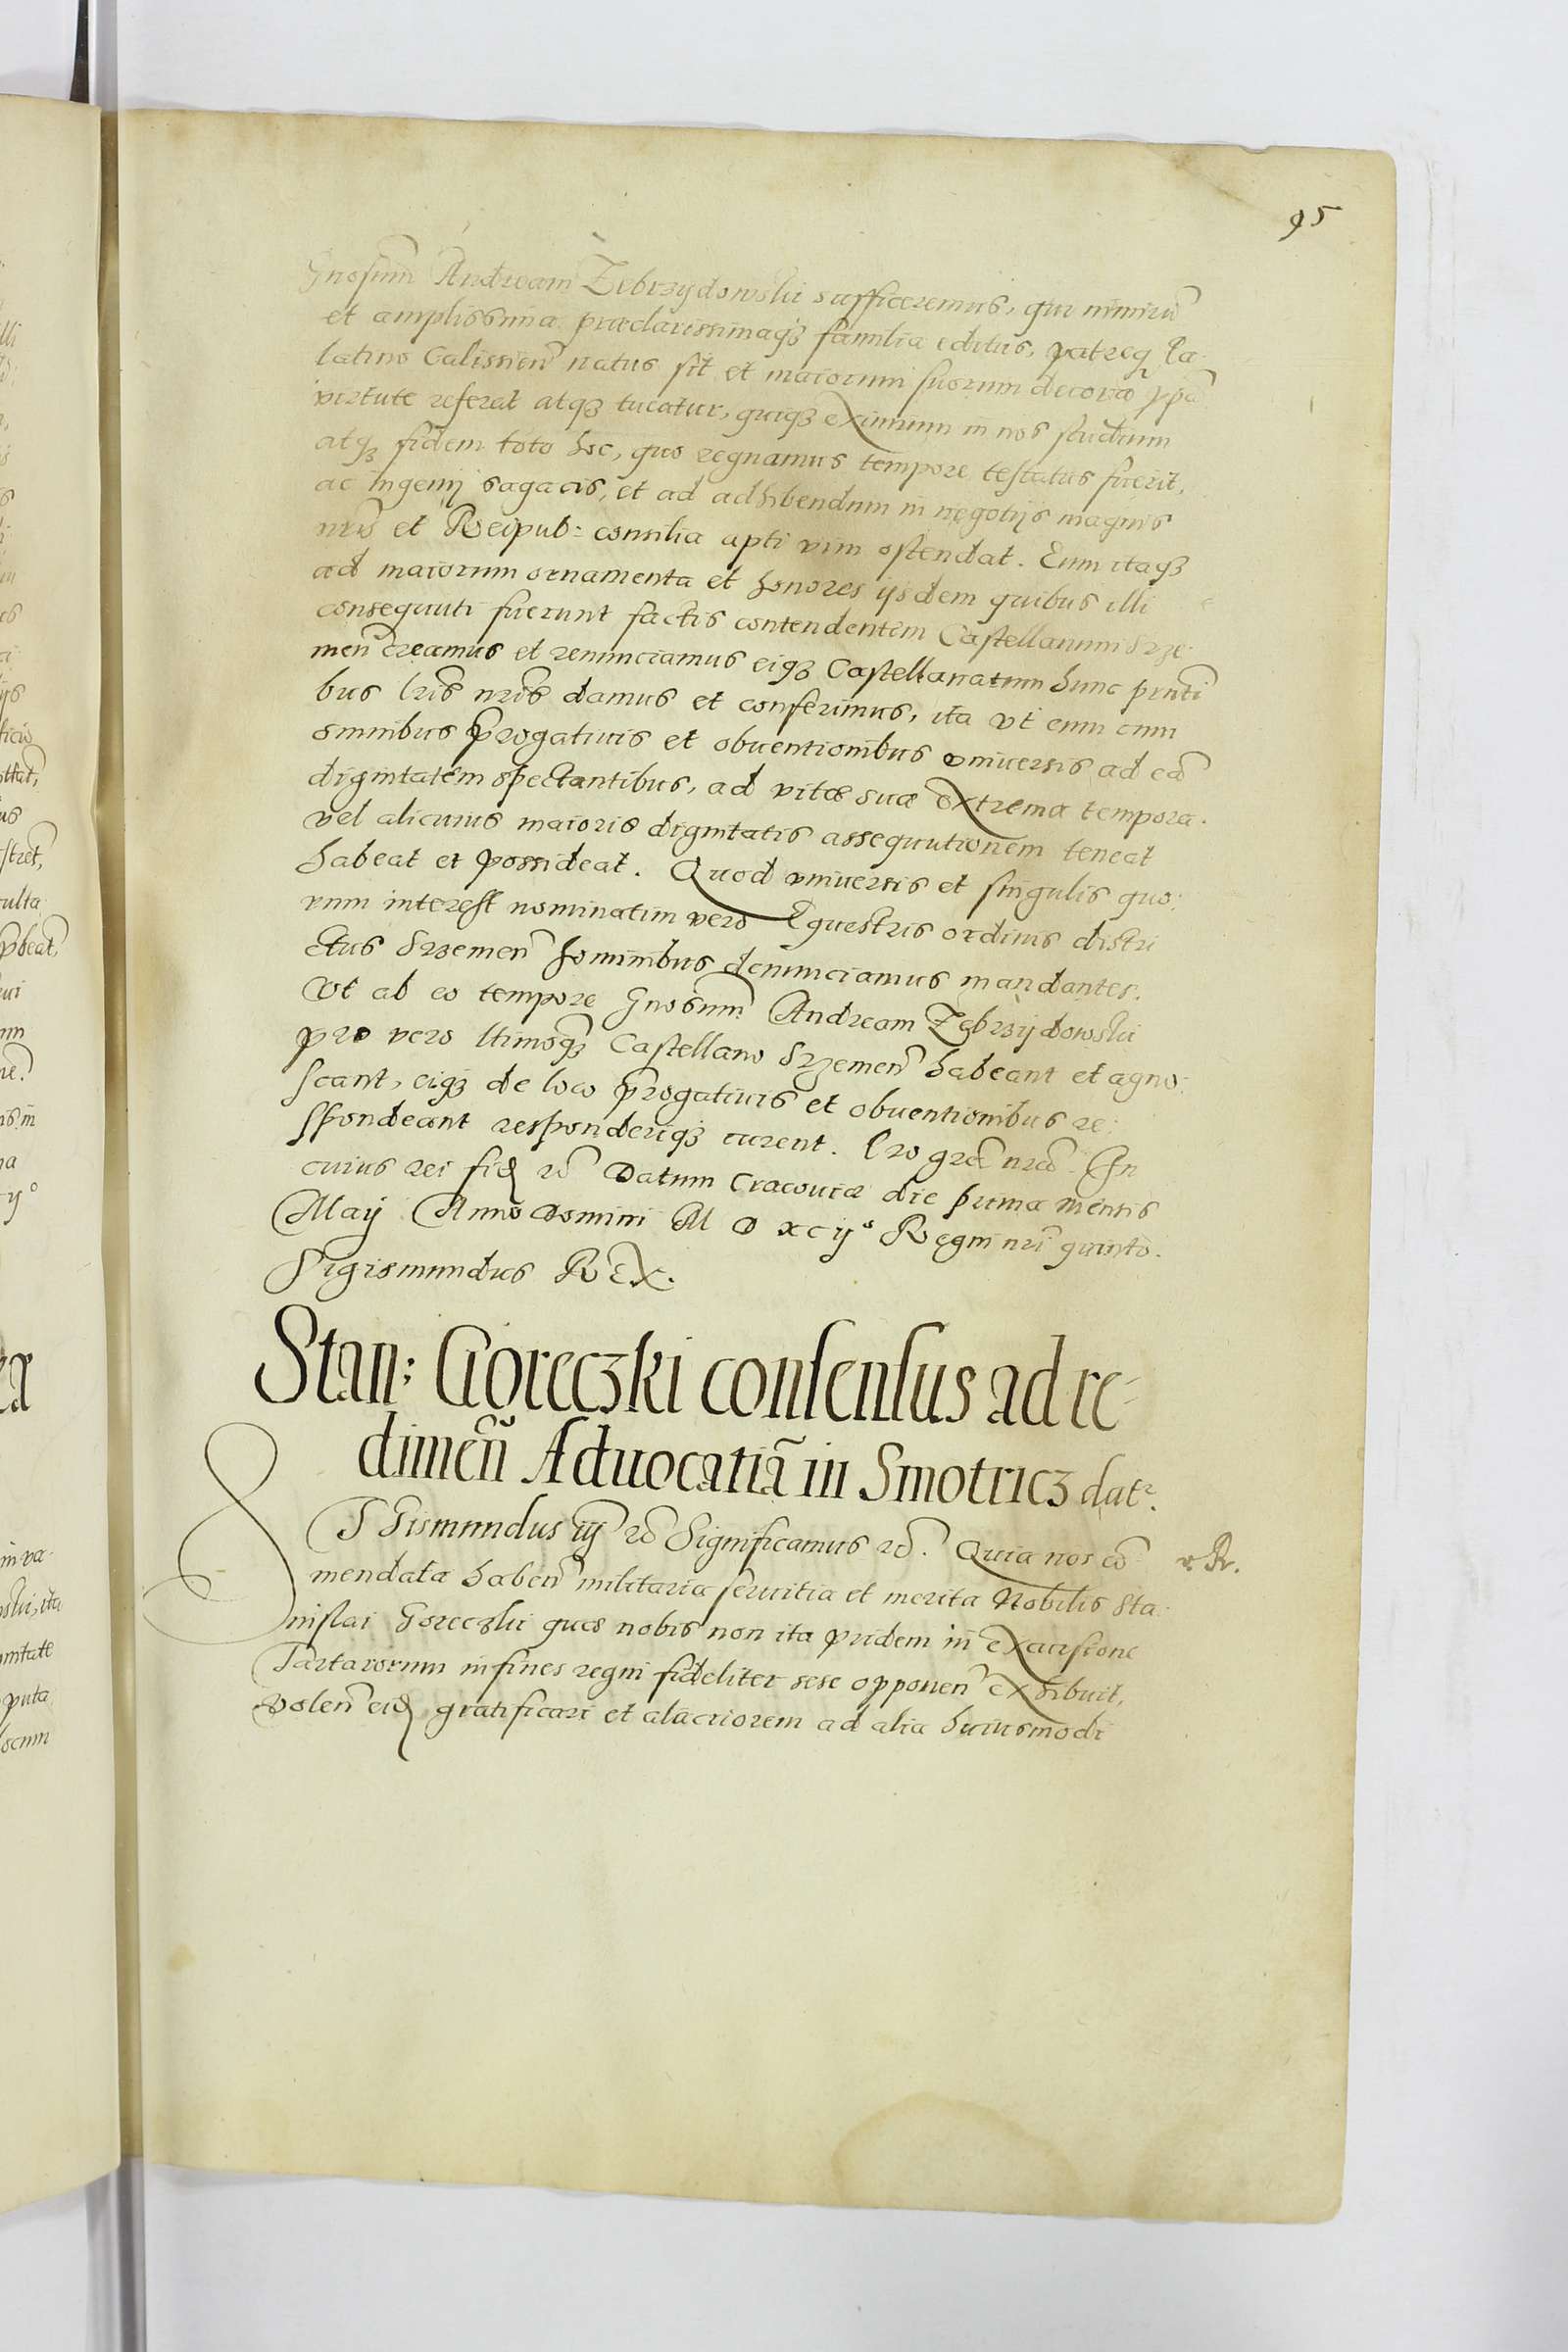 95
Gnosum Andream Zebrzydowski sufficeremus, qui nimirũ
et amplissima præclarissimaqꝫ familia editus, patreq Pa-
latino Calissien natus sit et maiorum suorum decora
virtute referat atqꝫ tueatur, quiqꝫ eximium in nos studium
atqꝫ fidem toto hoc, quo regnamus tempore testatus fuerit,
ac ingenij sagacis, et ad adhibendum in negotijs magnis
nris et Reipub: consilia apti vim ostendat. Eum itaqꝫ
ad maiorum ornamenta et honores ijsdem quibus illi
consequuti fuerunt factis contendentem Castellanum Srze-
men creamus et renunciamus eiqꝫ Castellanatum hunc pnti
bus lris nris damus et conferimus, ita vt eum cum
omnibus progatiuis et obuentionibus vniuersis ad eã
dignitatem spectantibus, ad vitæ suæ extrema tempora.
vel alicuius maioris dignitatis assequutionem teneat
habeat et possideat. Quod vniuersis et singulis quo-
rum interest nominatim vero Equestris ordinis distri
ctus Srzemen hominibus denunciamus mandantes.
Vt ab eo tempore Gnosum Andream Zebrzijdowski
pro vero ltimoqꝫ Castellano Srzemen habeant et agno-
scant, eiqꝫ de loco progatiuis et obuentionibus re-
spondeant responderiqꝫ curent. Pro gra nra. In
cuius rei fid etc Datum Cracouiæ die prima mensis
Maij Anno Domini M D xcijº Regni nri quinto.
Sigismundus REX.
Stan: Goreczki consensus ad re-
dimeñ Aduocatiã in Smotricz dat.
SIGismundus iij etc Significamus etc. Quia nos cõ-
v. R.
mendata haben militaria seruitia et merita Nobilis Sta-
nislai Goreczki quæ nobis non ita pridem in excursione
Tartarorum in fines regni fideliter sese opponen exhibuit,
volen eid gratificari et alacriorem ad alia huiusmodi